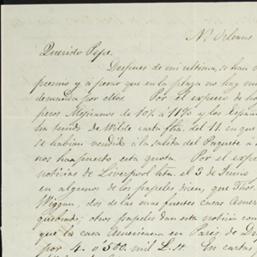 N. Orleans
Querido Pepe
Despues de mi ultima, se han
premio y a pesar que en la plaza no hay
demanda por ellos. Por el espreso de ho
pesos Mejicanos de 10% a 11% y los Españo
he tenido de Wilde carta fha. del 11. en que
se habian vendido a la salida del Paquete a
nos ha puesto esta quota. Por el expre
noticias de Liverpool hta. el 3 de Junio
en algunos de los papeles dicen, que Thos.
Wiggin, dos de las mas fuertes casas Amer
quebrado; otros papeles dan esta noticia con
que la casa Americana en Paris de
por 4. o 500. mil L. St. En cartas